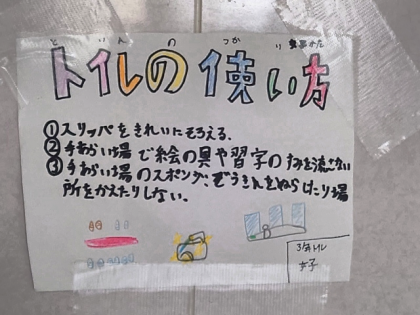 トイレの使い方
①スリッパをきれいにそろえる.
②手あらい場で絵の具や習字のすみを流さない
③手あらい場のスポンジ、ぞうきんをぬらしたり場
所をかえたりしない.
3年